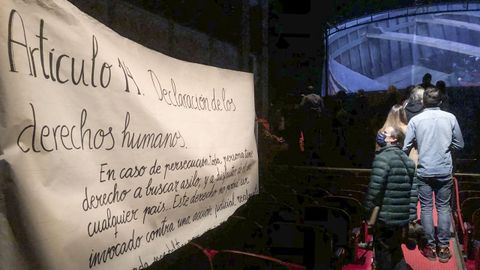 Artículo 14. Declaración de los
derechos humanos.
En caso de persecución, toda persona tiene
derecho a buscar asilo, y a disfrutar de él en
cualquier país. Este derecho no podrá ser
invocado contra una acción judicial realmente